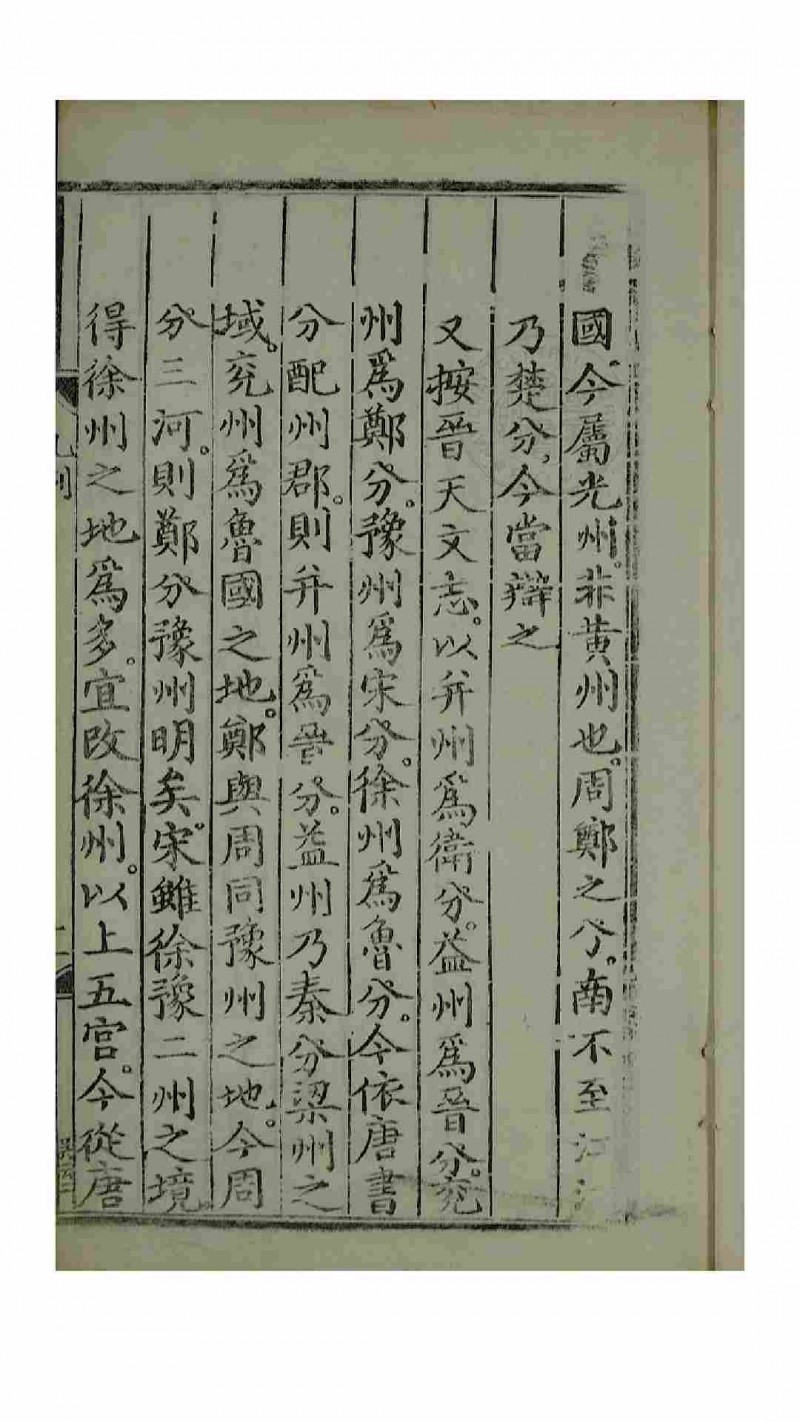 國今屬光州。非黃州也。周鄭之分。南不至
乃楚分,今當辯之
又按晉天文志。以并州爲衛分。益州爲晉分。兖
州爲鄭分。豫州爲宋分。徐州爲魯分。今依唐書
分配州郡。則并州爲晉分。益州乃秦分梁州之
域。兖州爲魯國之地。鄭與周同豫州之地。今周
分三河。則鄭分豫州明矣。宋雖徐豫二州之境
得徐州之地爲多。宜改徐州。以上五宫。今從唐